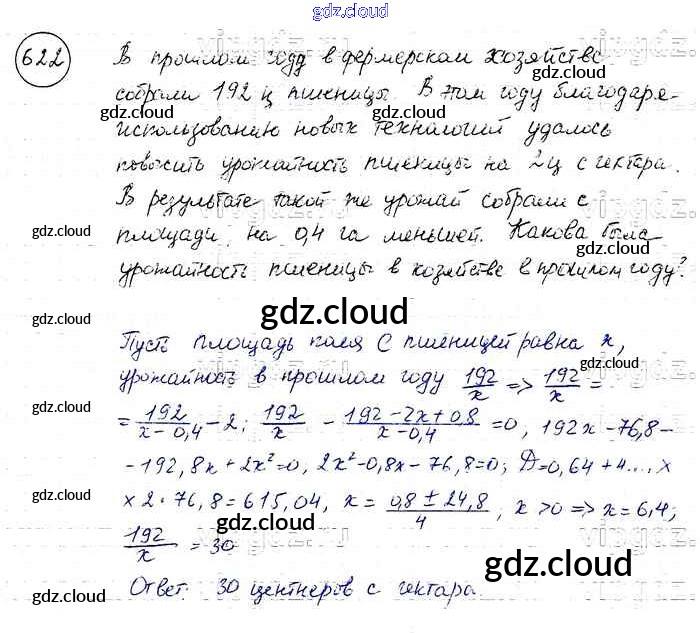 gdz.cloud
622
В прошлом году в фермерском хозяйстве
собрали 192 ц пшеницы. В этом году благодаря
использованию новых технологий удалось
повысить урожайность пшеницы на 2ц с гектара.
В результате такой же урожай собрали с
площади, на 0,4 га меньшей. Какова была
урожайность пшеницы в хозяйстве в прошлом году?
gdz.cloud
Пусть площадь поля с пшеницей равна x,
урожайность в прошлом году 192/x => 192/x =
= 192/x-0,4 - 2; 192/x - 192-2x+0,8/x-0,4 = 0, 192x-76,8-
-192,8x+2x²=0, 2x²-0,8x-76,8=0; D=0,64+4...x
x 2·76,8=615,04, x = 0,8±24,8/4; x>0 => x=6,4;
192/x = 30
Ответ: 30 центнеров с гектара.
gdz.cloud